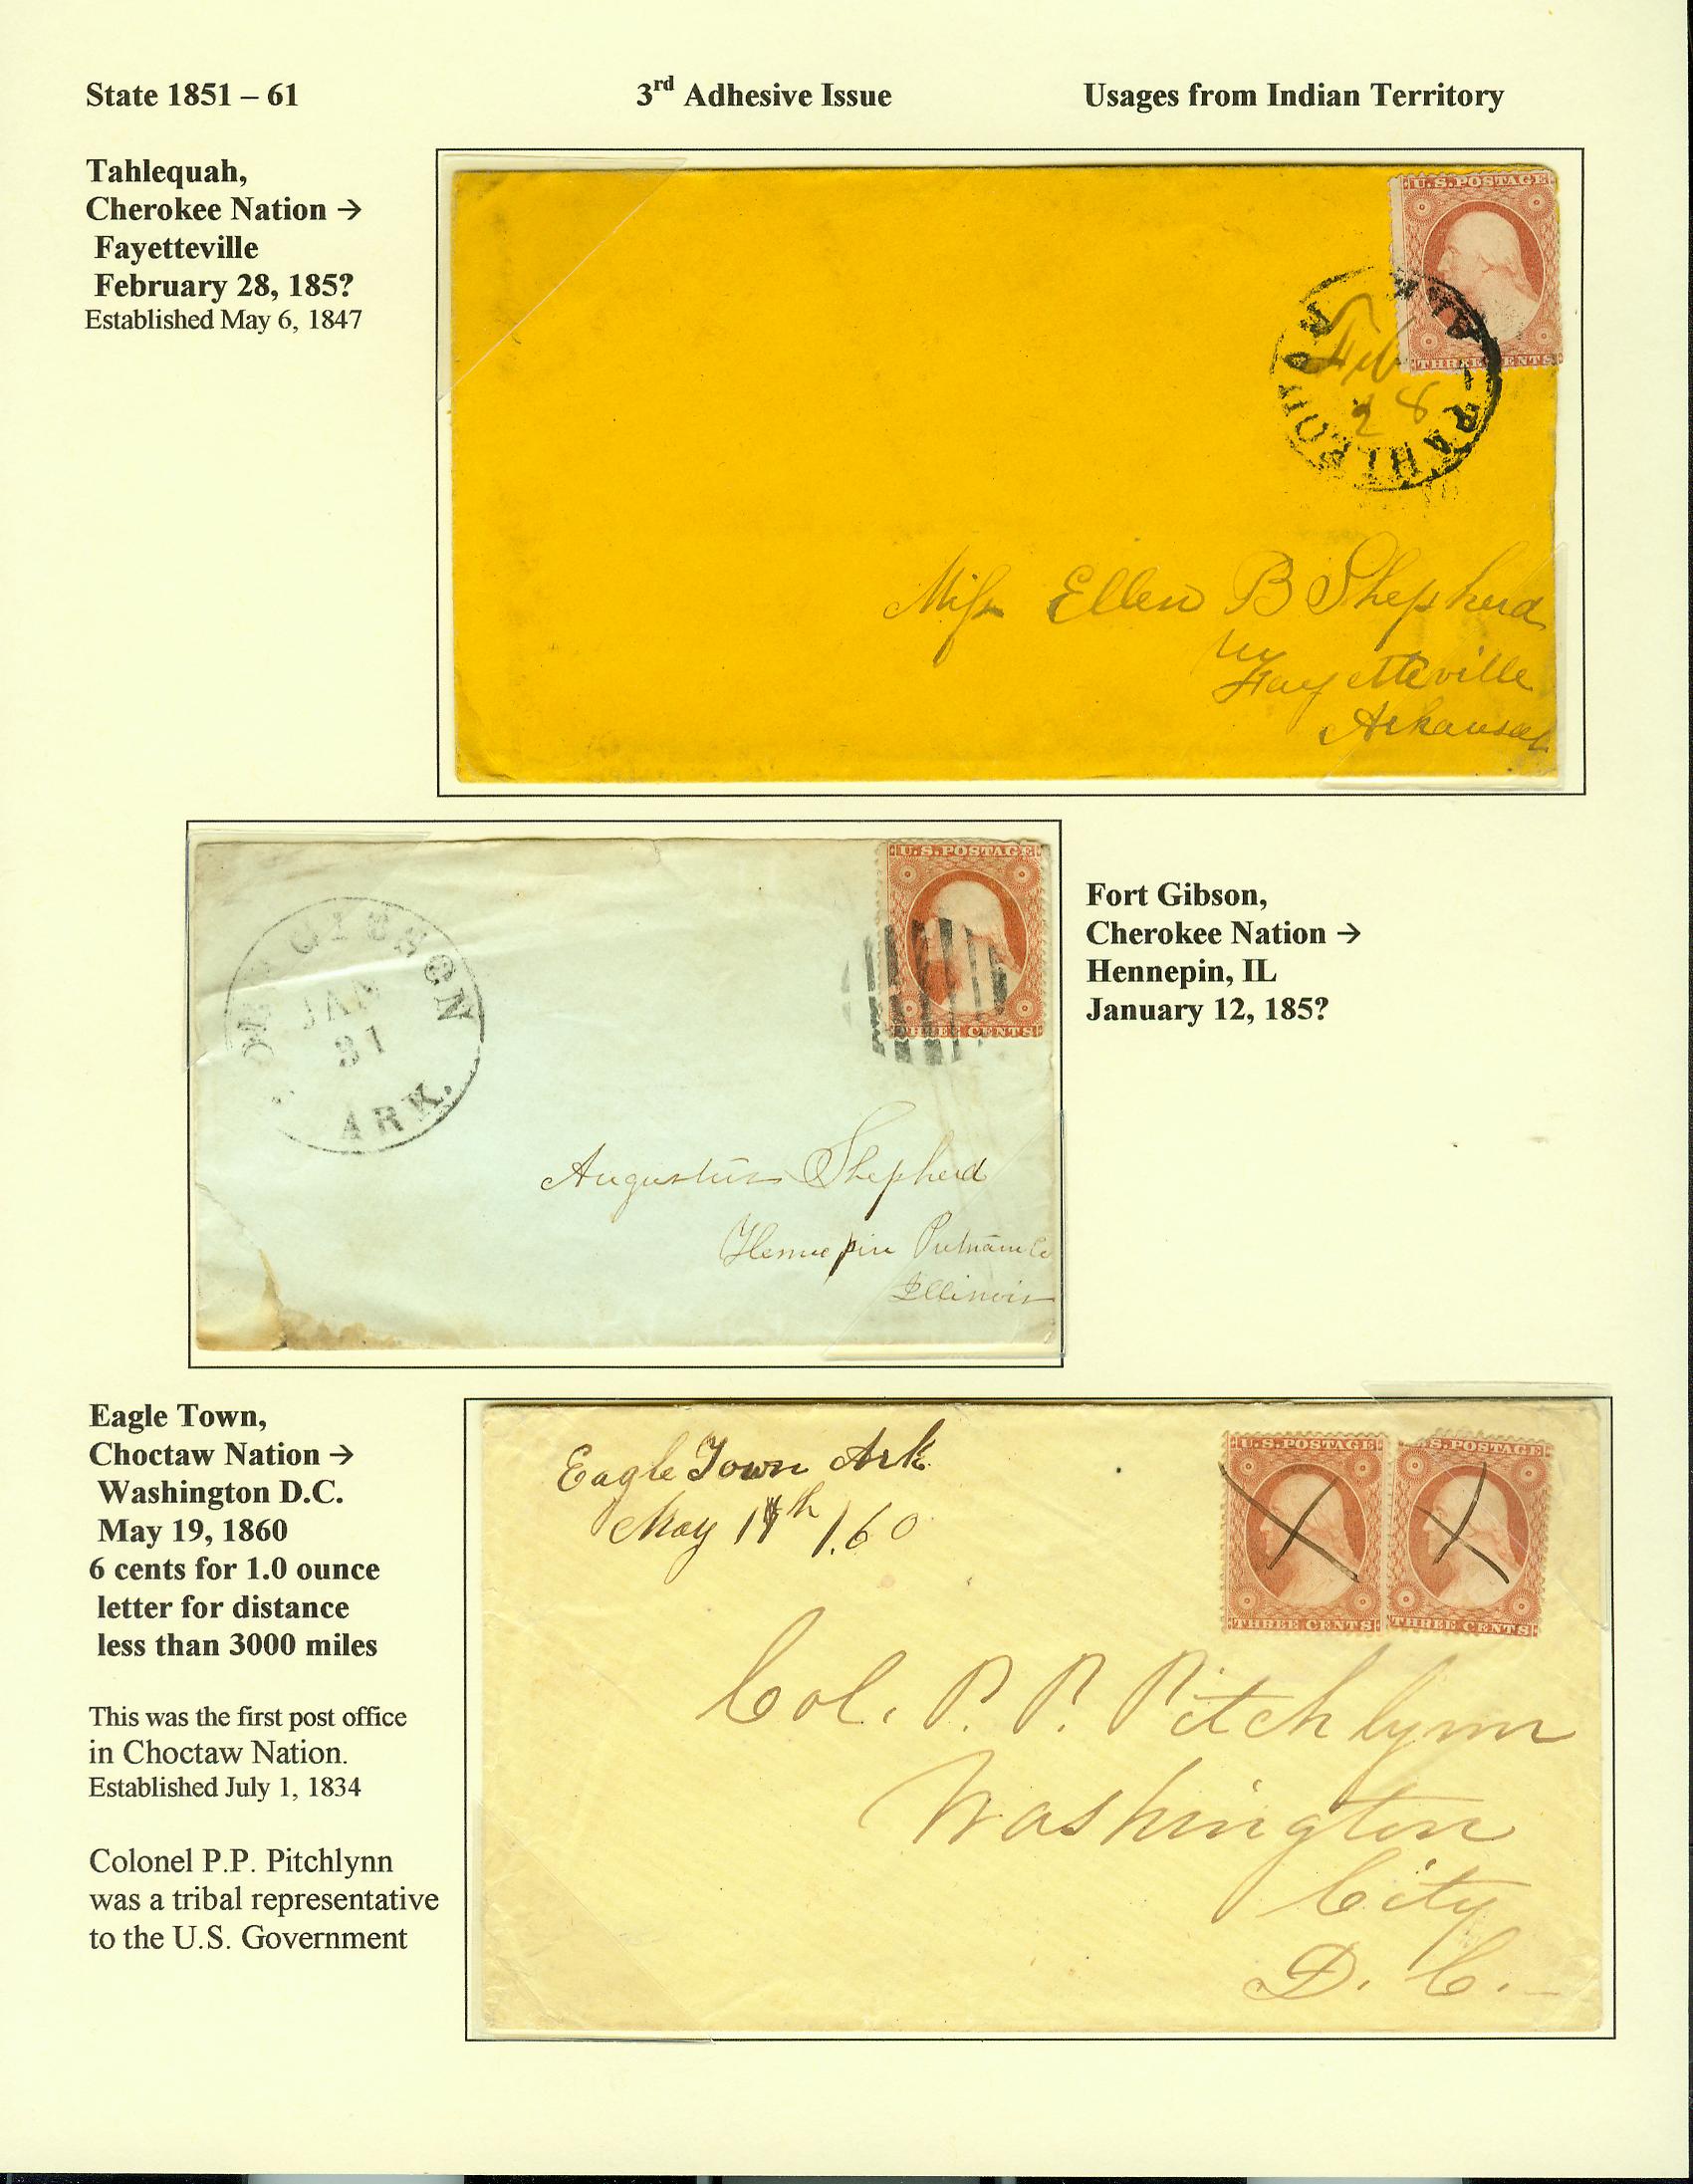 State 1851 – 61
3rd Adhesive Issue
Usages from Indian Territory
Tahlequah,
Cherokee Nation →
Fayetteville
February 28, 185?
Established May 6, 1847
U.S. POSTAGE
THREE CENTS
TAHLEQUAH
ARK
Feb
28
Miss Ellen B Shepherd
Fayetteville
Arkansas
U.S. POSTAGE
THREE CENTS
GIBSON
JAN
31
ARK.
Augustus Shepherd
Hennepin Putnam Co
Illinois
Fort Gibson,
Cherokee Nation →
Hennepin, IL
January 12, 185?
Eagle Town,
Choctaw Nation →
Washington D.C.
May 19, 1860
6 cents for 1.0 ounce
letter for distance
less than 3000 miles
This was the first post office
in Choctaw Nation.
Established July 1, 1834
Colonel P.P. Pitchlynn
was a tribal representative
to the U.S. Government
Eagle Town Ark
May 19th /60
U.S. POSTAGE
THREE CENTS
U.S. POSTAGE
THREE CENTS
Col. P. P. Pitchlynn
Washington
City
D. C.